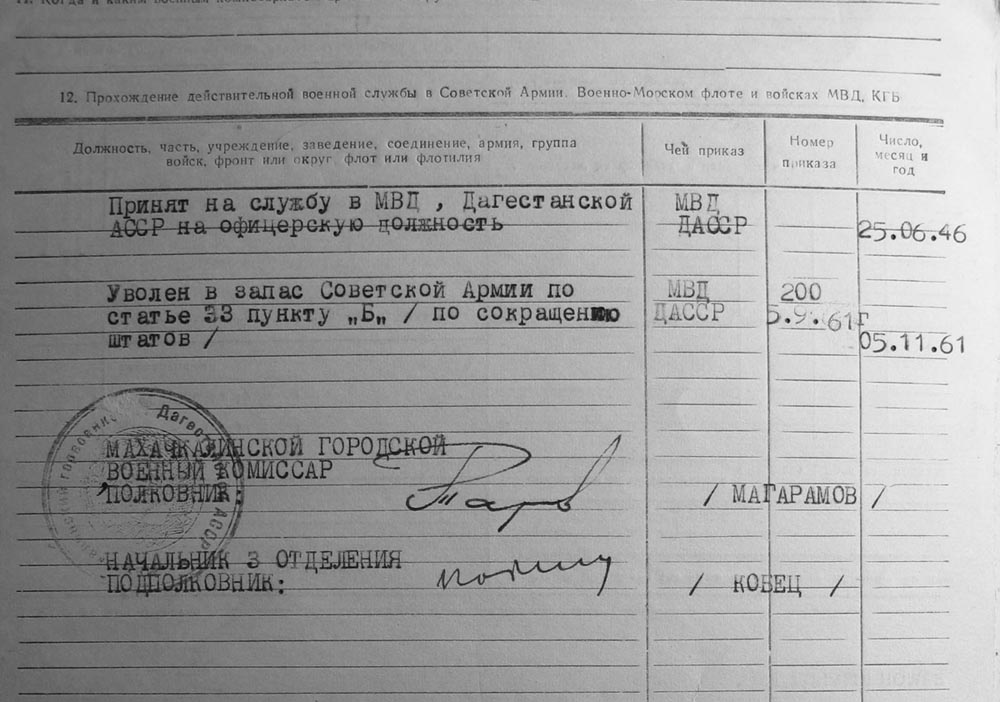 12. Прохождение действительной военной службы в Советской Армии, Военно-Морском флоте и войсках МВД, КГБ
Должность, часть, учреждение, заведение, соединение, армия, группа
войск, фронт или округ флот или флотилия
Чей приказ
Номер
приказа
Число,
месяц и
год
Принят на службу в МВД , Дагестанской МВД
АССР на офицерскую должность ДАССР 25.06.46
Уволен в запас Советской Армии по МВД 200
статье 33 пункту „Б„ / по сокращению ДАССР 5.9.61г
штатов / 05.11.61
МАХАЧКАЛИНСКОЙ ГОРОДСКОЙ
ВОЕННЫЙ КОМИССАР
ПОЛКОВНИК: / МАГАРАМОВ /
НАЧАЛЬНИК 3 ОТДЕЛЕНИЯ
ПОДПОЛКОВНИК: / КОБЕЦ /